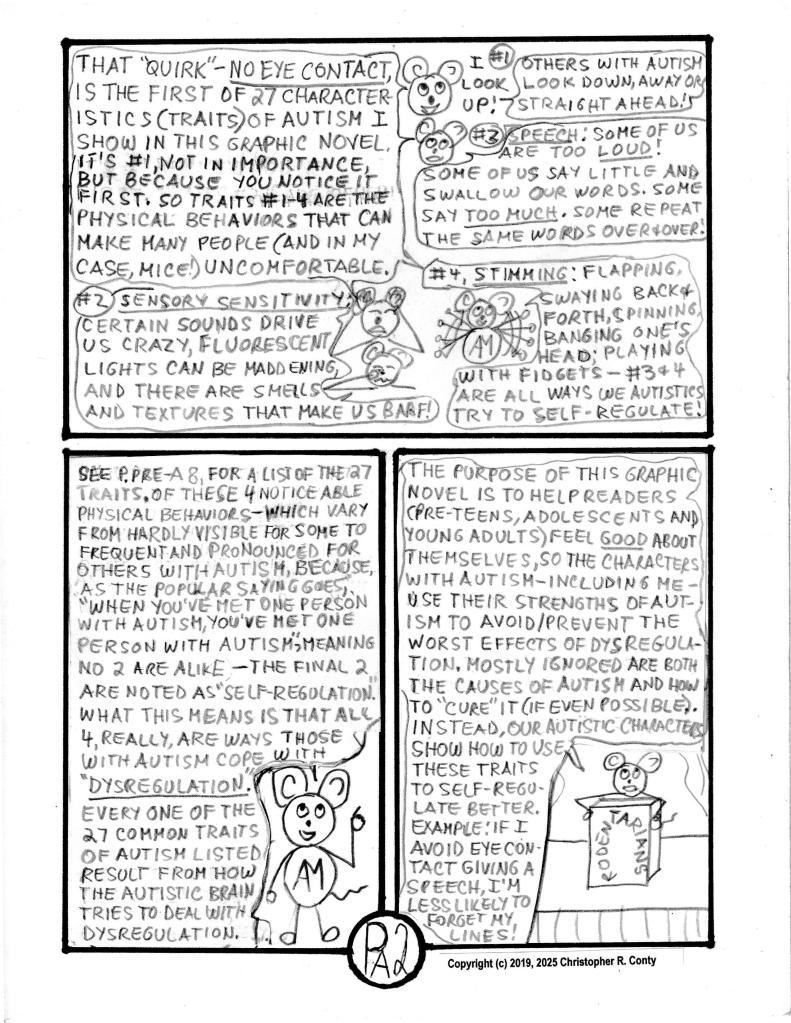 THAT "QUIRK"-NO EYE CONTACT,
IS THE FIRST OF 27 CHARACTER-
ISTICS (TRAITS) OF AUTISM I
SHOW IN THIS GRAPHIC NOVEL.
IT'S #1, NOT IN IMPORTANCE,
BUT BECAUSE YOU NOTICE IT
FIRST. SO TRAITS #1-4 ARE THE
PHYSICAL BEHAVIORS THAT CAN
MAKE MANY PEOPLE (AND IN MY
CASE, MICE!) UNCOMFORTABLE.
#1
I
LOOK
UP!
OTHERS WITH AUTISM
LOOK DOWN, AWAY OR
STRAIGHT AHEAD!
#2 SENSORY SENSITIVITY:
CERTAIN SOUNDS DRIVE
US CRAZY, FLUORESCENT
LIGHTS CAN BE MADDENING,
AND THERE ARE SMELLS
AND TEXTURES THAT MAKE US BARF!
#3 SPEECH: SOME OF US
ARE TOO LOUD!
SOME OF US SAY LITTLE AND
SWALLOW OUR WORDS. SOME
SAY TOO MUCH. SOME REPEAT
THE SAME WORDS OVER & OVER!
#4, STIMMING: FLAPPING,
SWAYING BACK &
FORTH, SPINNING,
BANGING ONE'S
HEAD; PLAYING
WITH FIDGETS - #3 & 4
ARE ALL WAYS WE AUTISTICS
TRY TO SELF-REGULATE!
AM
SEE P. PRE-A 8, FOR A LIST OF THE 27
TRAITS. OF THESE 4 NOTICEABLE
PHYSICAL BEHAVIORS-WHICH VARY
FROM HARDLY VISIBLE FOR SOME TO
FREQUENT AND PRONOUNCED FOR
OTHERS WITH AUTISM, BECAUSE,
AS THE POPULAR SAYING GOES,
"WHEN YOU'VE MET ONE PERSON
WITH AUTISM, YOU'VE MET ONE
PERSON WITH AUTISM"; MEANING
NO 2 ARE ALIKE - THE FINAL 2
ARE NOTED AS "SELF-REGULATION."
WHAT THIS MEANS IS THAT ALL
4, REALLY, ARE WAYS THOSE
WITH AUTISM COPE WITH
"DYSREGULATION".
EVERY ONE OF THE
27 COMMON TRAITS
OF AUTISM LISTED
RESULT FROM HOW
THE AUTISTIC BRAIN
TRIES TO DEAL WITH
DYSREGULATION.
AM
THE PURPOSE OF THIS GRAPHIC
NOVEL IS TO HELP READERS
(PRE-TEENS, ADOLESCENTS AND
YOUNG ADULTS) FEEL GOOD ABOUT
THEMSELVES, SO THE CHARACTERS
WITH AUTISM-INCLUDING ME-
USE THEIR STRENGTHS OF AUT-
ISM TO AVOID/PREVENT THE
WORST EFFECTS OF DYSREGULA-
TION. MOSTLY IGNORED ARE BOTH
THE CAUSES OF AUTISM AND HOW
TO "CURE" IT (IF EVEN POSSIBLE).
INSTEAD, OUR AUTISTIC CHARACTERS
SHOW HOW TO USE
THESE TRAITS
TO SELF-REGU-
LATE BETTER.
EXAMPLE: IF I
AVOID EYE CON-
TACT GIVING A
SPEECH, I'M
LESS LIKELY TO
FORGET MY
LINES!
RODENTARIANS
PA2
Copyright (c) 2019, 2025 Christopher R. Conty